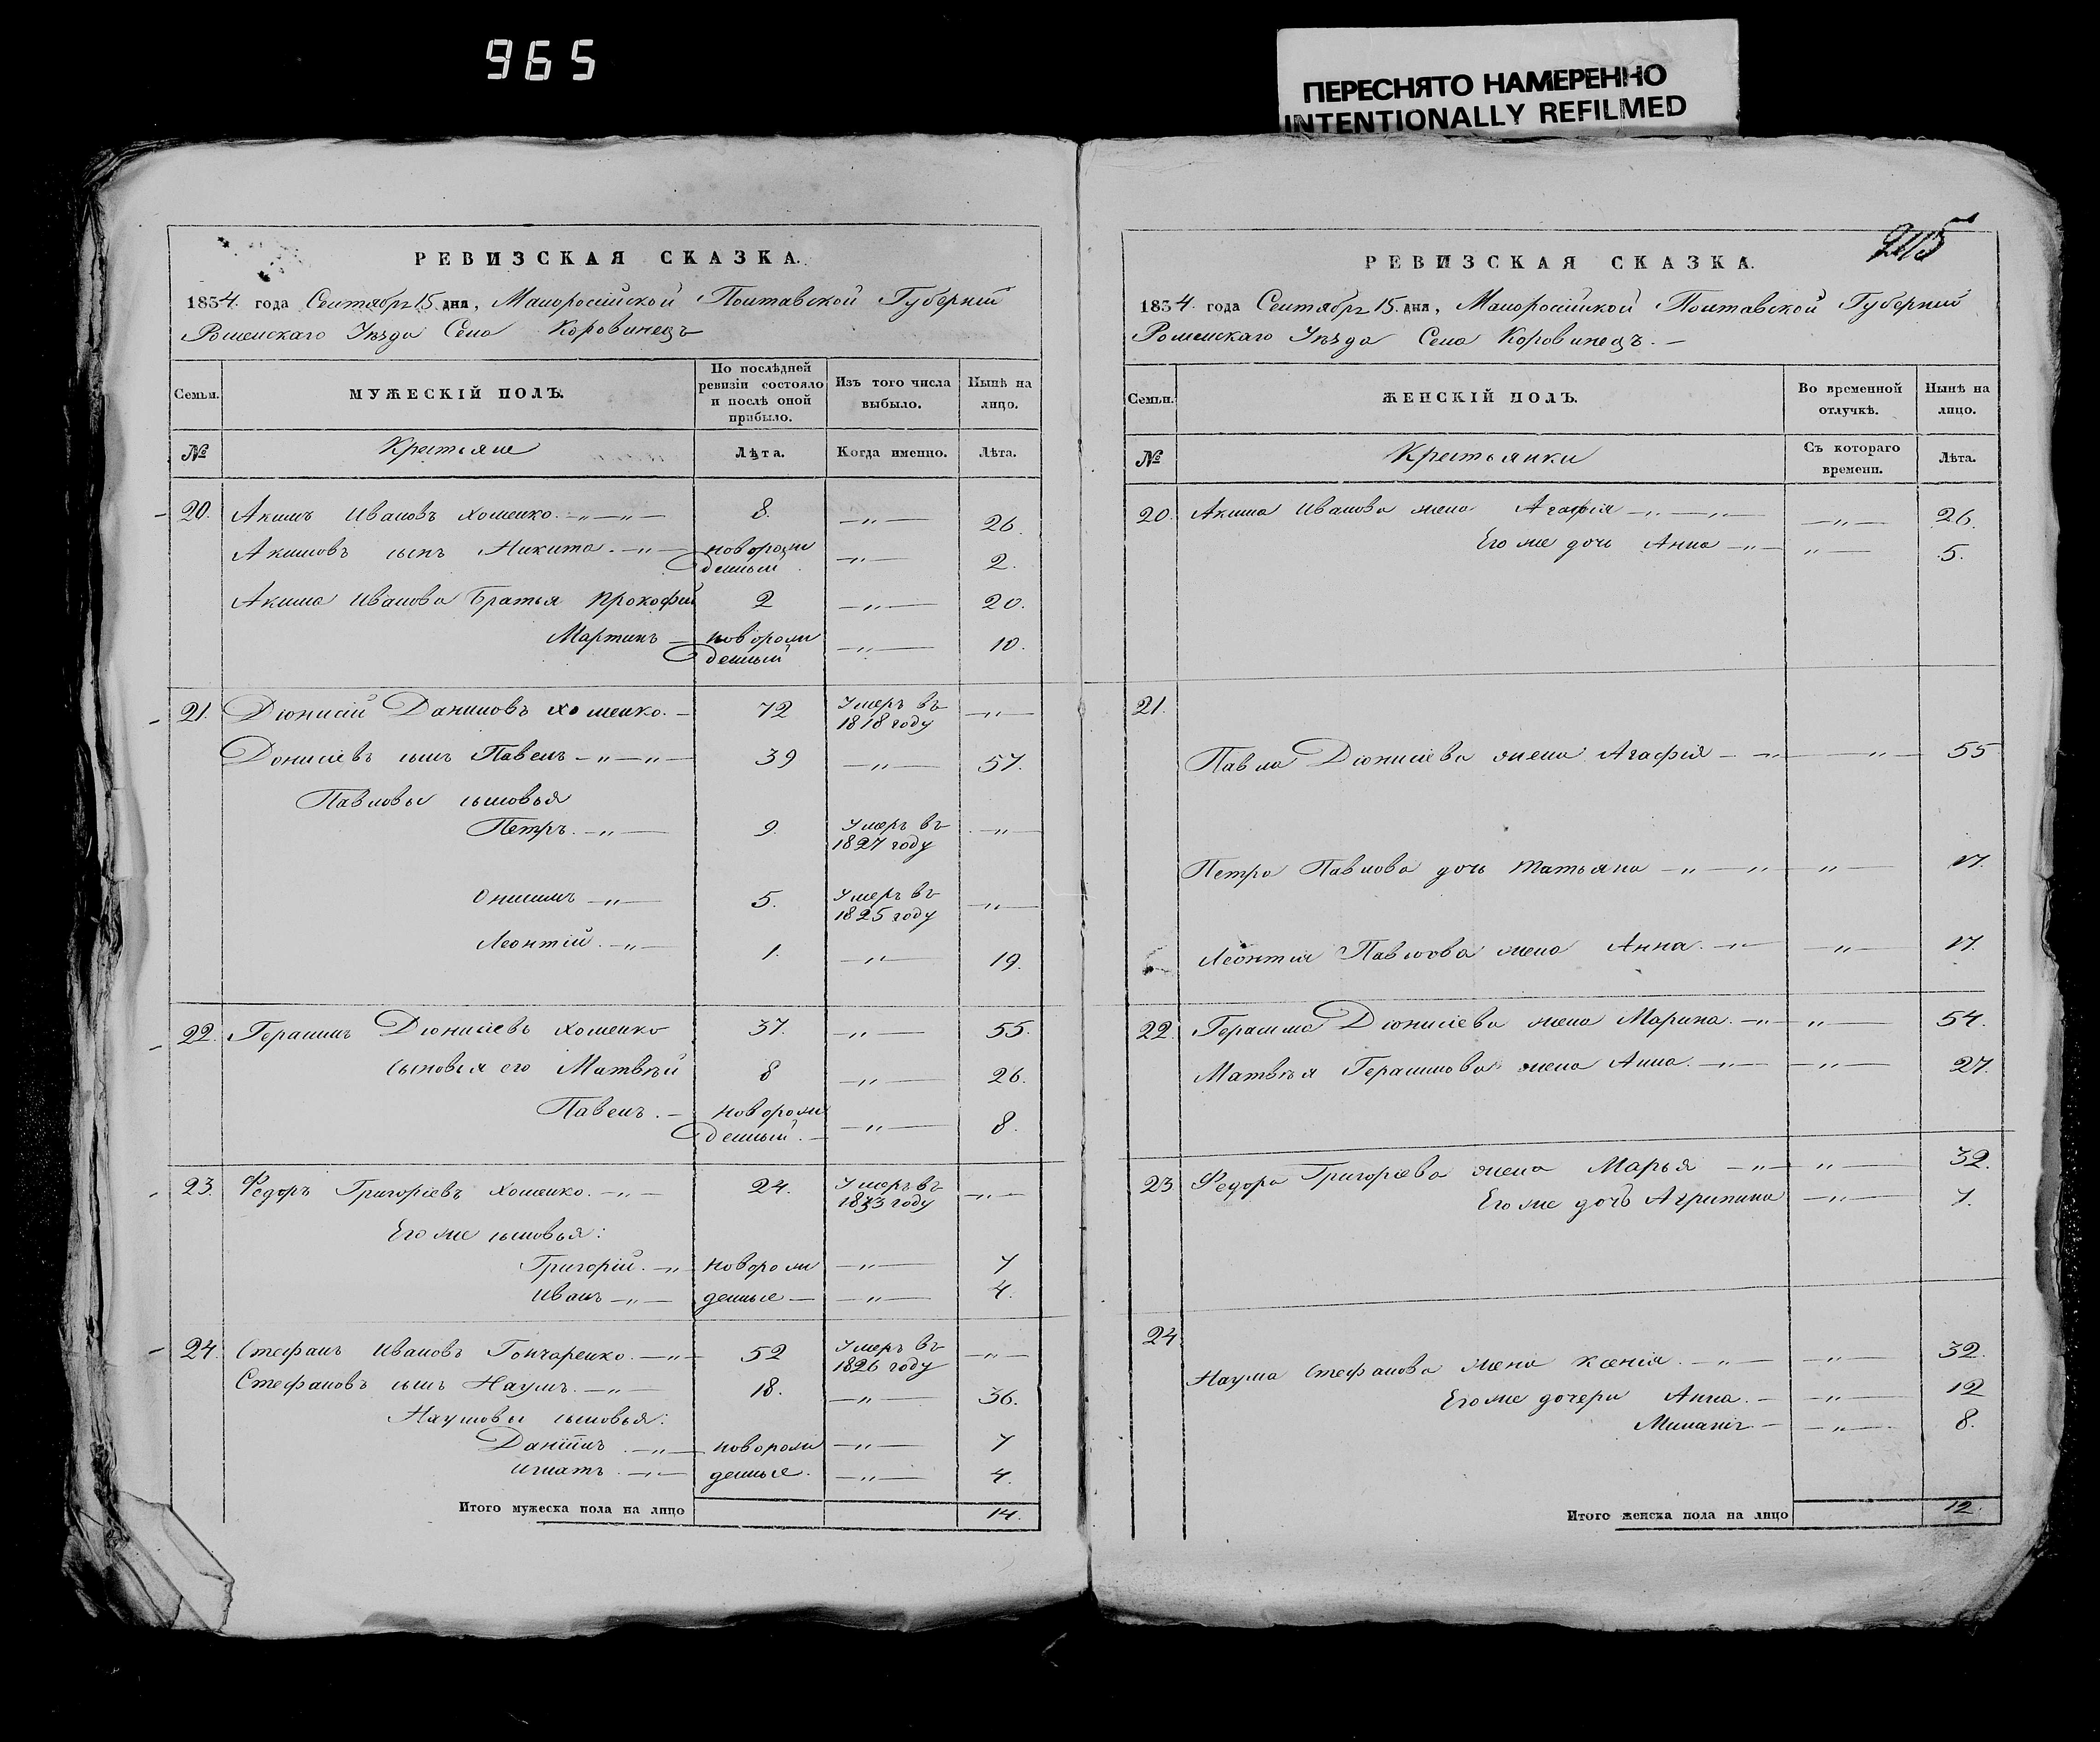 965
ПЕРЕСНЯТО НАМЕРЕННО
INTENTIONALLY REFILMED
РЕВИЗСКАЯ СКАЗКА.
1834. года Сентября 15. дня, Малоросійской Полтавской Губерніи
Роменскаго Уѣзда Села Коровинецъ
Семьи.
МУЖЕСКІЙ ПОЛЪ.
По послѣдней ревизіи состояло и послѣ оной прибыло.
Изъ того числа выбыло.
Нынѣ на лицо.
№
Крестьяне
Лѣта.
Когда именно.
Лѣта.
20. Акимъ Ивановъ Хоменко. —„—„— 8. —„— 26.
Акимовъ сынъ Никита. —„— новорожденный —„— 2.
Акима Иванова Братья Прокофій 2 —„— 20.
Мартинъ — новорожденный —„— 10.
21. Діонисій Даниловъ Хоменко. — 72 Умеръ въ 1818 году —„—
Донисіевъ сынъ Павелъ —„—„— 39 —„— 57.
Павловы сыновья
Петръ. —„— 9. Умеръ въ 1827 году —„—
Онисимъ —„— 5. Умеръ въ 1825 году —„—
Леонтій. —„— 1. —„— 19.
22. Герасимъ Діонисіевъ Хоменко 37. —„— 55.
сыновья его Матвѣй 8 —„— 26.
Павелъ. — новорожденный. —„— 8.
23. Федоръ Григоріевъ Хоменко. —„— 24. Умеръ въ 1833 году —„—
Его же сыновья:
Григорій. —„— новорож —„— 7
Иванъ —„— денные — —„— 4.
24. Стефанъ Ивановъ Гончаренко. —„— 52 Умеръ въ 1826 году —„—
Стефановъ сынъ Наумъ. —„— 18. —„— 36.
Наумовы сыновья:
Даніилъ. —„— новорож —„— 7
Игнатъ. —„— денные. —„— 4.
Итого мужеска пола на лицо 14.
215
РЕВИЗСКАЯ СКАЗКА.
1834. года Сентября 15. дня, Малоросійской Полтавской Губерніи
Роменскаго Уѣзда Села Коровинецъ. —
Семьи.
ЖЕНСКІЙ ПОЛЪ.
Во временной отлучкѣ.
Нынѣ на лицо.
№
Крестьянки
Съ котораго времени.
Лѣта.
20. Акима Иванова жена Агафія —„—„— —„— 26.
Его же дочь Анна —„— „— 5.
21.
Павла Діонисіева жена Агафія —„— „— 55
Петра Павлова дочь Татьяна —„—„— „— 17.
Леонтія Павлова жена Анна. —„— —„— 17.
22. Герасима Діонисіева жена Марина. —„— „— 54.
Матвѣя Герасимова жена Анна. —„— —„— 27.
23 Федора Григоріева жена Марья —„— „— 32.
Его же дочь Агрипина —„— 7.
24.
Наума Стефанова жена Ксенія. —„— —„— 32.
Его же дочери Анна. — —„— 12
Миланія — —„— 8.
Итого женска пола на лицо 12.